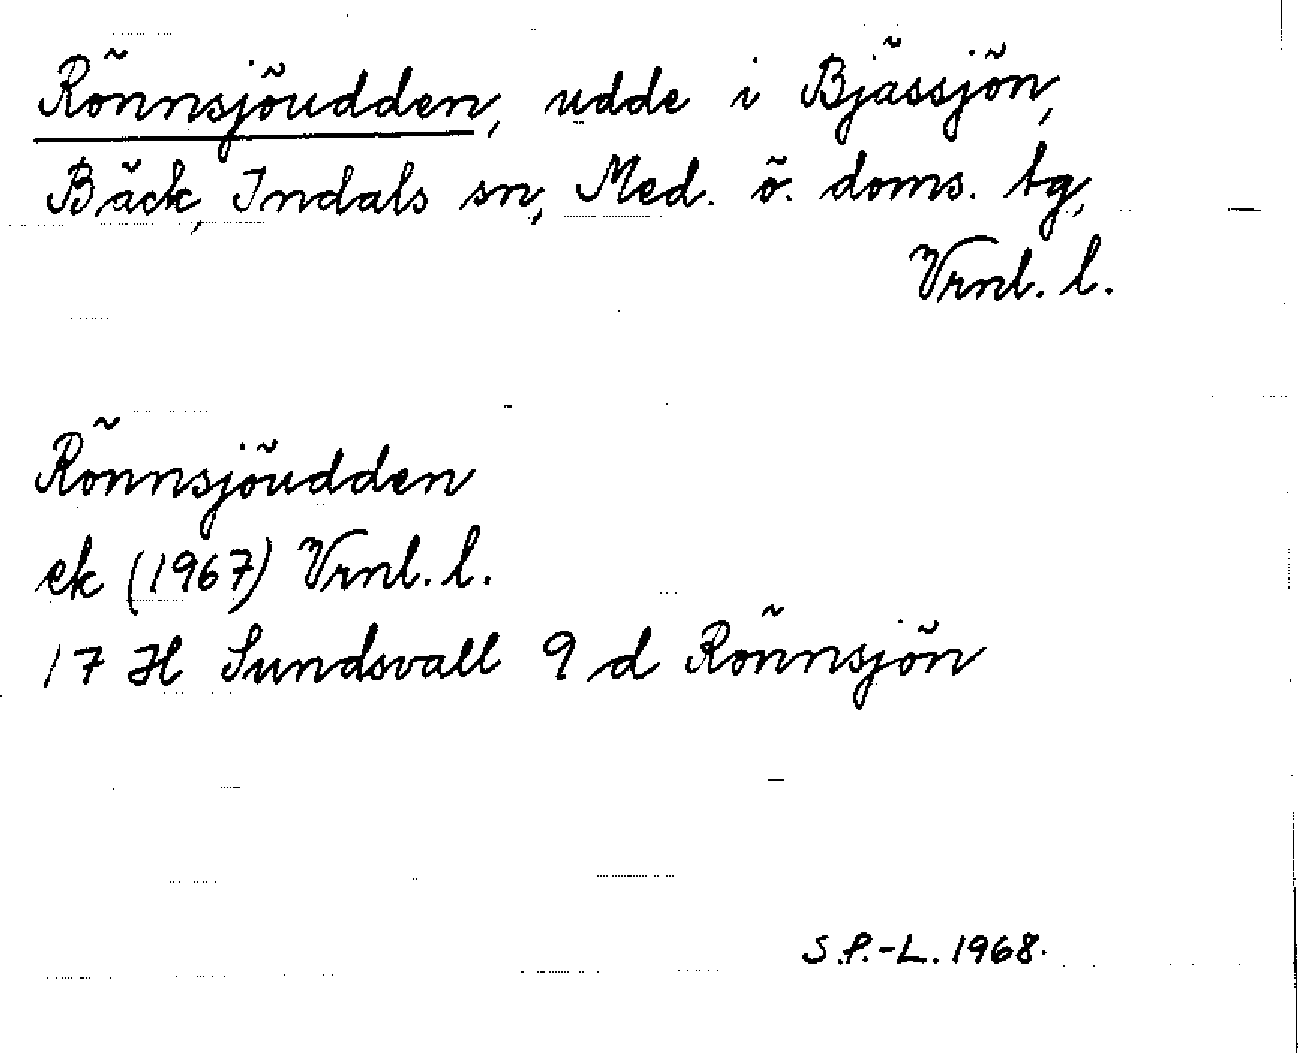 Rönnsjöudden, udde i Bjässjön,
Bäck, Indals sn, Med. ö. doms. tg,
Vrnl. l.
Rönnsjöudden
ek (1967) Vrnl. l.
17 H Sundsvall 9 d Rönnsjön
S.P.-L. 1968.